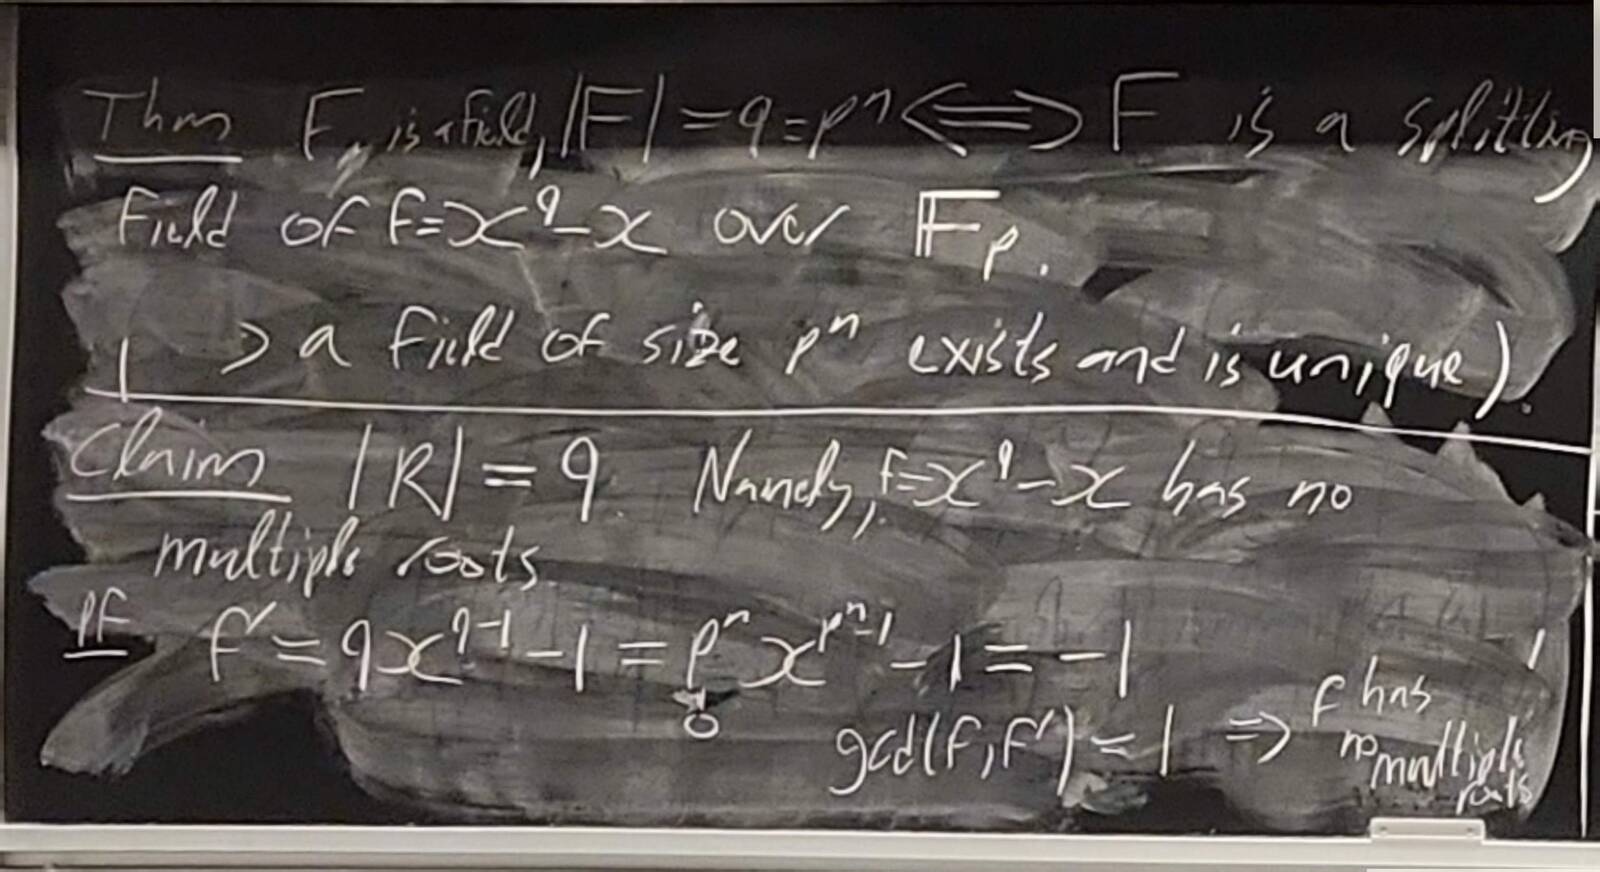 Thm F is a field, |F| = q = pⁿ ⟺ F is a splitting
field of f = x^q - x over 𝔽_p.
> a field of size pⁿ exists and is unique).
Claim |R| = q. Namely, f = x^q - x has no
multiple roots
Pf f' = qx^{q-1} - 1 = pⁿ x^{pⁿ-1} - 1 = -1
0
gcd(f, f') = 1 ⇒ f has
no multiple
roots